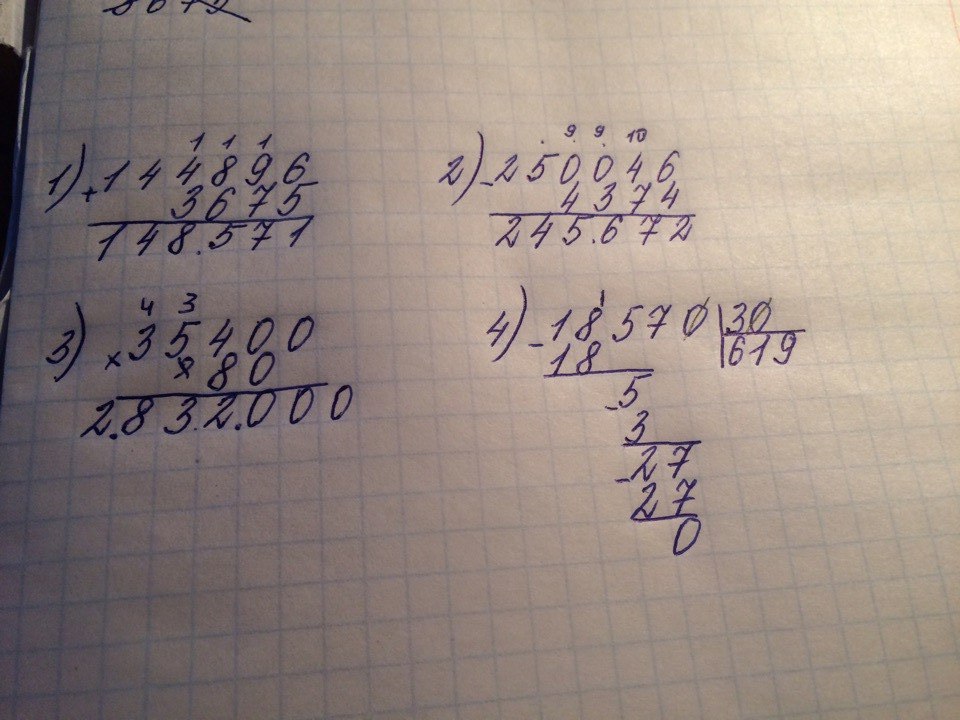 8672
1) 1 1 1
+144896
3675
148.571
2) . 9 9 10
-250046
4374
245.672
3) 4 3
×35400
×80
2.832.000
4) -18570 |30
18 |619
-5
3
-27
27
0